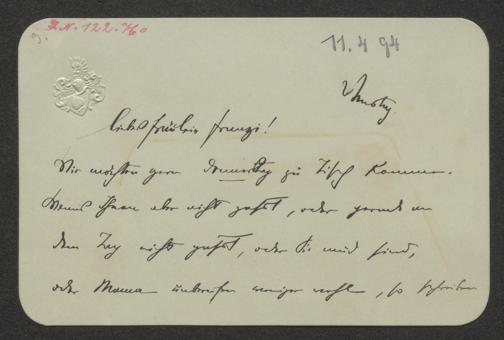 J.N. 122.760
11.4 94
Dienstag
liebes Fräulein Franzi!
Wir möchten gern Donnerstag zu Tisch kommen.
Wenns Ihnen aber nicht passt, oder gerade an
dem Tag nicht passt, oder Sie müd sind,
oder Mama unberufen weniger wohl, so schreiben